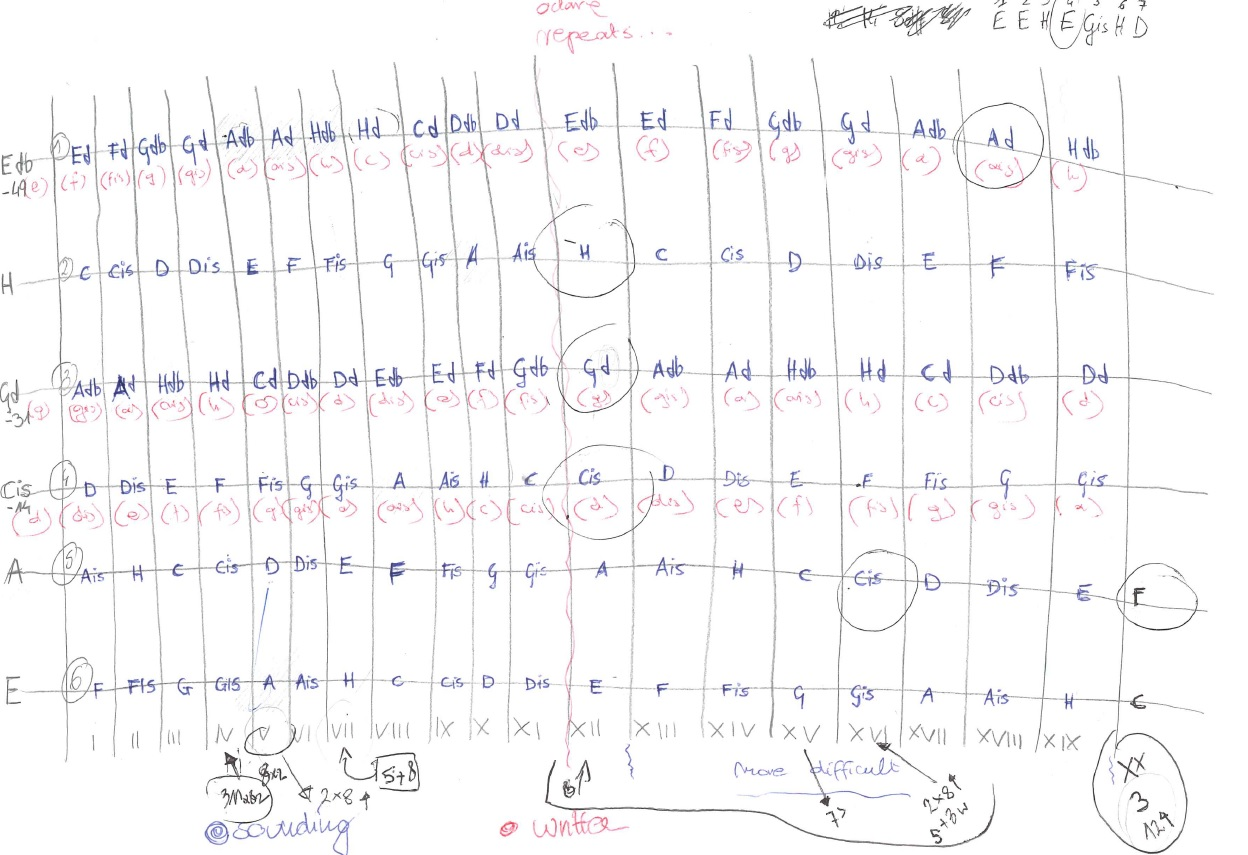 octave
repeats...
1 2 3 4 5 6 7
E E H E Gis H D
Edb ① Ed Fd Gdb Gd Adb Ad Hdb Hd Cd Ddb Dd Edb Ed Fd Gdb Gd Adb Ad Hdb
-49 (e) (f) (fis) (g) (gis) (a) (ais) (h) (c) (cis) (d) (dis) (e) (f) (fis) (g) (gis) (a) (ais) (h)
H ② C Cis D Dis E F Fis G Gis A Ais H C Cis D Dis E F Fis
Gd ③ Adb Ad Hdb Hd Cd Ddb Dd Edb Ed Fd Gdb Gd Adb Ad Hdb Hd Cd Ddb Dd
-31 (g) (gis) (a) (ais) (h) (c) (cis) (d) (dis) (e) (f) (fis) (g) (gis) (a) (ais) (h) (c) (cis) (d)
Cis ④ D Dis E F Fis G Gis A Ais H C Cis D Dis E F Fis G Gis
-14 (d) (dis) (e) (f) (fis) (g) (gis) (a) (ais) (h) (c) (cis) (d) (dis) (e) (f) (fis) (g) (gis) (a)
A ⑤ Ais H C Cis D Dis E F Fis G Gis A Ais H C Cis D Dis E F
E ⑥ F FIS G GIS A Ais H C Cis D Dis E F Fis G Gis A Ais H C
I II III IV V VI VII VIII IX X XI XII XIII XIV XV XVI XVII XVIII XIX XX
8x2 5+8 8↑ more difficult 3
2x8↑ 7> 2x8↑ 124
5+3w
sounding written